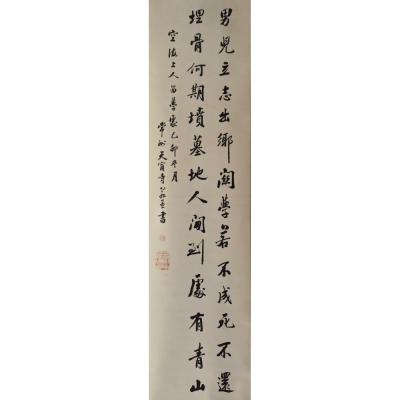 男兒立志出鄉關學若不成死不還
埋骨何期墳墓地人間到處有青山
空海上人留學處己卯冬月
常州天寧寺書